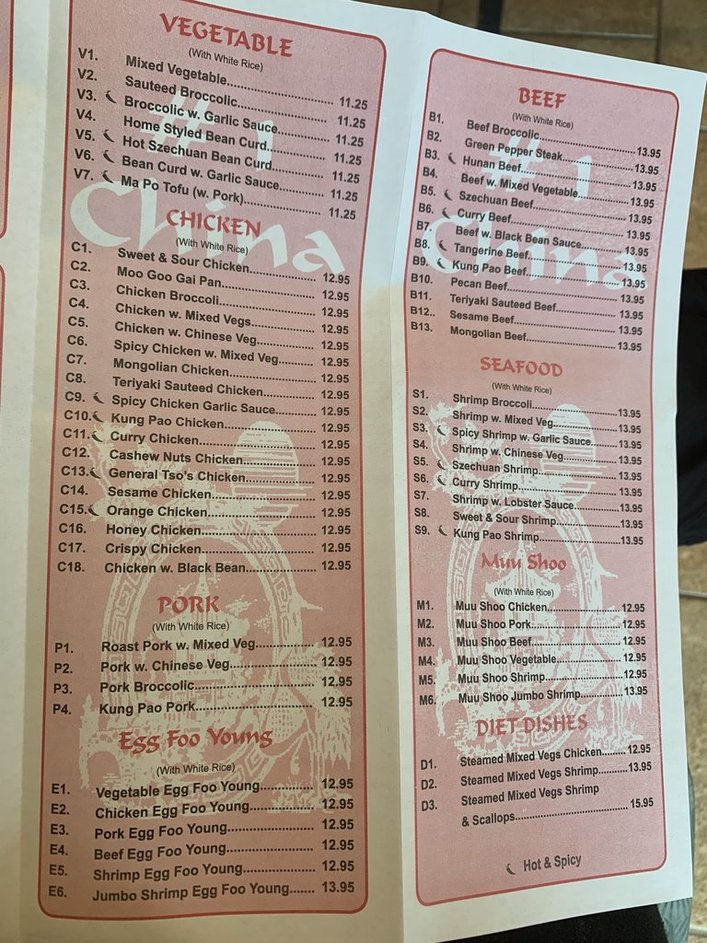 VEGETABLE
(With White Rice)
V1. Mixed Vegetable 11.25
V2. Sauteed Broccolic 11.25
V3. Broccolic w. Garlic Sauce 11.25
V4. Home Styled Bean Curd 11.25
V5. Hot Szechuan Bean Curd 11.25
V6. Bean Curd w. Garlic Sauce 11.25
V7. Ma Po Tofu (w. Pork) 11.25
# 1
China
CHICKEN
(With White Rice)
C1. Sweet & Sour Chicken 12.95
C2. Moo Goo Gai Pan 12.95
C3. Chicken Broccoli 12.95
C4. Chicken w. Mixed Vegs 12.95
C5. Chicken w. Chinese Veg 12.95
C6. Spicy Chicken w. Mixed Veg 12.95
C7. Mongolian Chicken 12.95
C8. Teriyaki Sauteed Chicken 12.95
C9. Spicy Chicken Garlic Sauce 12.95
C10. Kung Pao Chicken 12.95
C11. Curry Chicken 12.95
C12. Cashew Nuts Chicken 12.95
C13. General Tso's Chicken 12.95
C14. Sesame Chicken 12.95
C15. Orange Chicken 12.95
C16. Honey Chicken 12.95
C17. Crispy Chicken 12.95
C18. Chicken w. Black Bean 12.95
PORK
(With White Rice)
P1. Roast Pork w. Mixed Veg 12.95
P2. Pork w. Chinese Veg 12.95
P3. Pork Broccolic 12.95
P4. Kung Pao Pork 12.95
Egg Foo Young
(With White Rice)
E1. Vegetable Egg Foo Young 12.95
E2. Chicken Egg Foo Young 12.95
E3. Pork Egg Foo Young 12.95
E4. Beef Egg Foo Young 12.95
E5. Shrimp Egg Foo Young 12.95
E6. Jumbo Shrimp Egg Foo Young 13.95
BEEF
(With White Rice)
B1. Beef Broccolic 13.95
B2. Green Pepper Steak 13.95
B3. Hunan Beef 13.95
B4. Beef w. Mixed Vegetable 13.95
B5. Szechuan Beef 13.95
B6. Curry Beef 13.95
B7. Beef w. Black Bean Sauce 13.95
B8. Tangerine Beef 13.95
B9. Kung Pao Beef 13.95
B10. Pecan Beef 13.95
B11. Teriyaki Sauteed Beef 13.95
B12.. Sesame Beef 13.95
B13. Mongolian Beef 13.95
# 1
China
SEAFOOD
(With White Rice)
S1. Shrimp Broccoli 13.95
S2. Shrimp w. Mixed Veg 13.95
S3. Spicy Shrimp w. Garlic Sauce 13.95
S4. Shrimp w. Chinese Veg 13.95
S5. Szechuan Shrimp 13.95
S6. Curry Shrimp 13.95
S7. Shrimp w. Lobster Sauce 13.95
S8. Sweet & Sour Shrimp 13.95
S9. Kung Pao Shrimp 13.95
Muu Shoo
(With White Rice)
M1. Muu Shoo Chicken 12.95
M2. Muu Shoo Pork 12.95
M3. Muu Shoo Beef 12.95
M4. Muu Shoo Vegetable 12.95
M5. Muu Shoo Shrimp 12.95
M6. Muu Shoo Jumbo Shrimp 13.95
DIET DISHES
D1. Steamed Mixed Vegs Chicken 12.95
D2. Steamed Mixed Vegs Shrimp 13.95
D3. Steamed Mixed Vegs Shrimp
& Scallops 15.95
Hot & Spicy